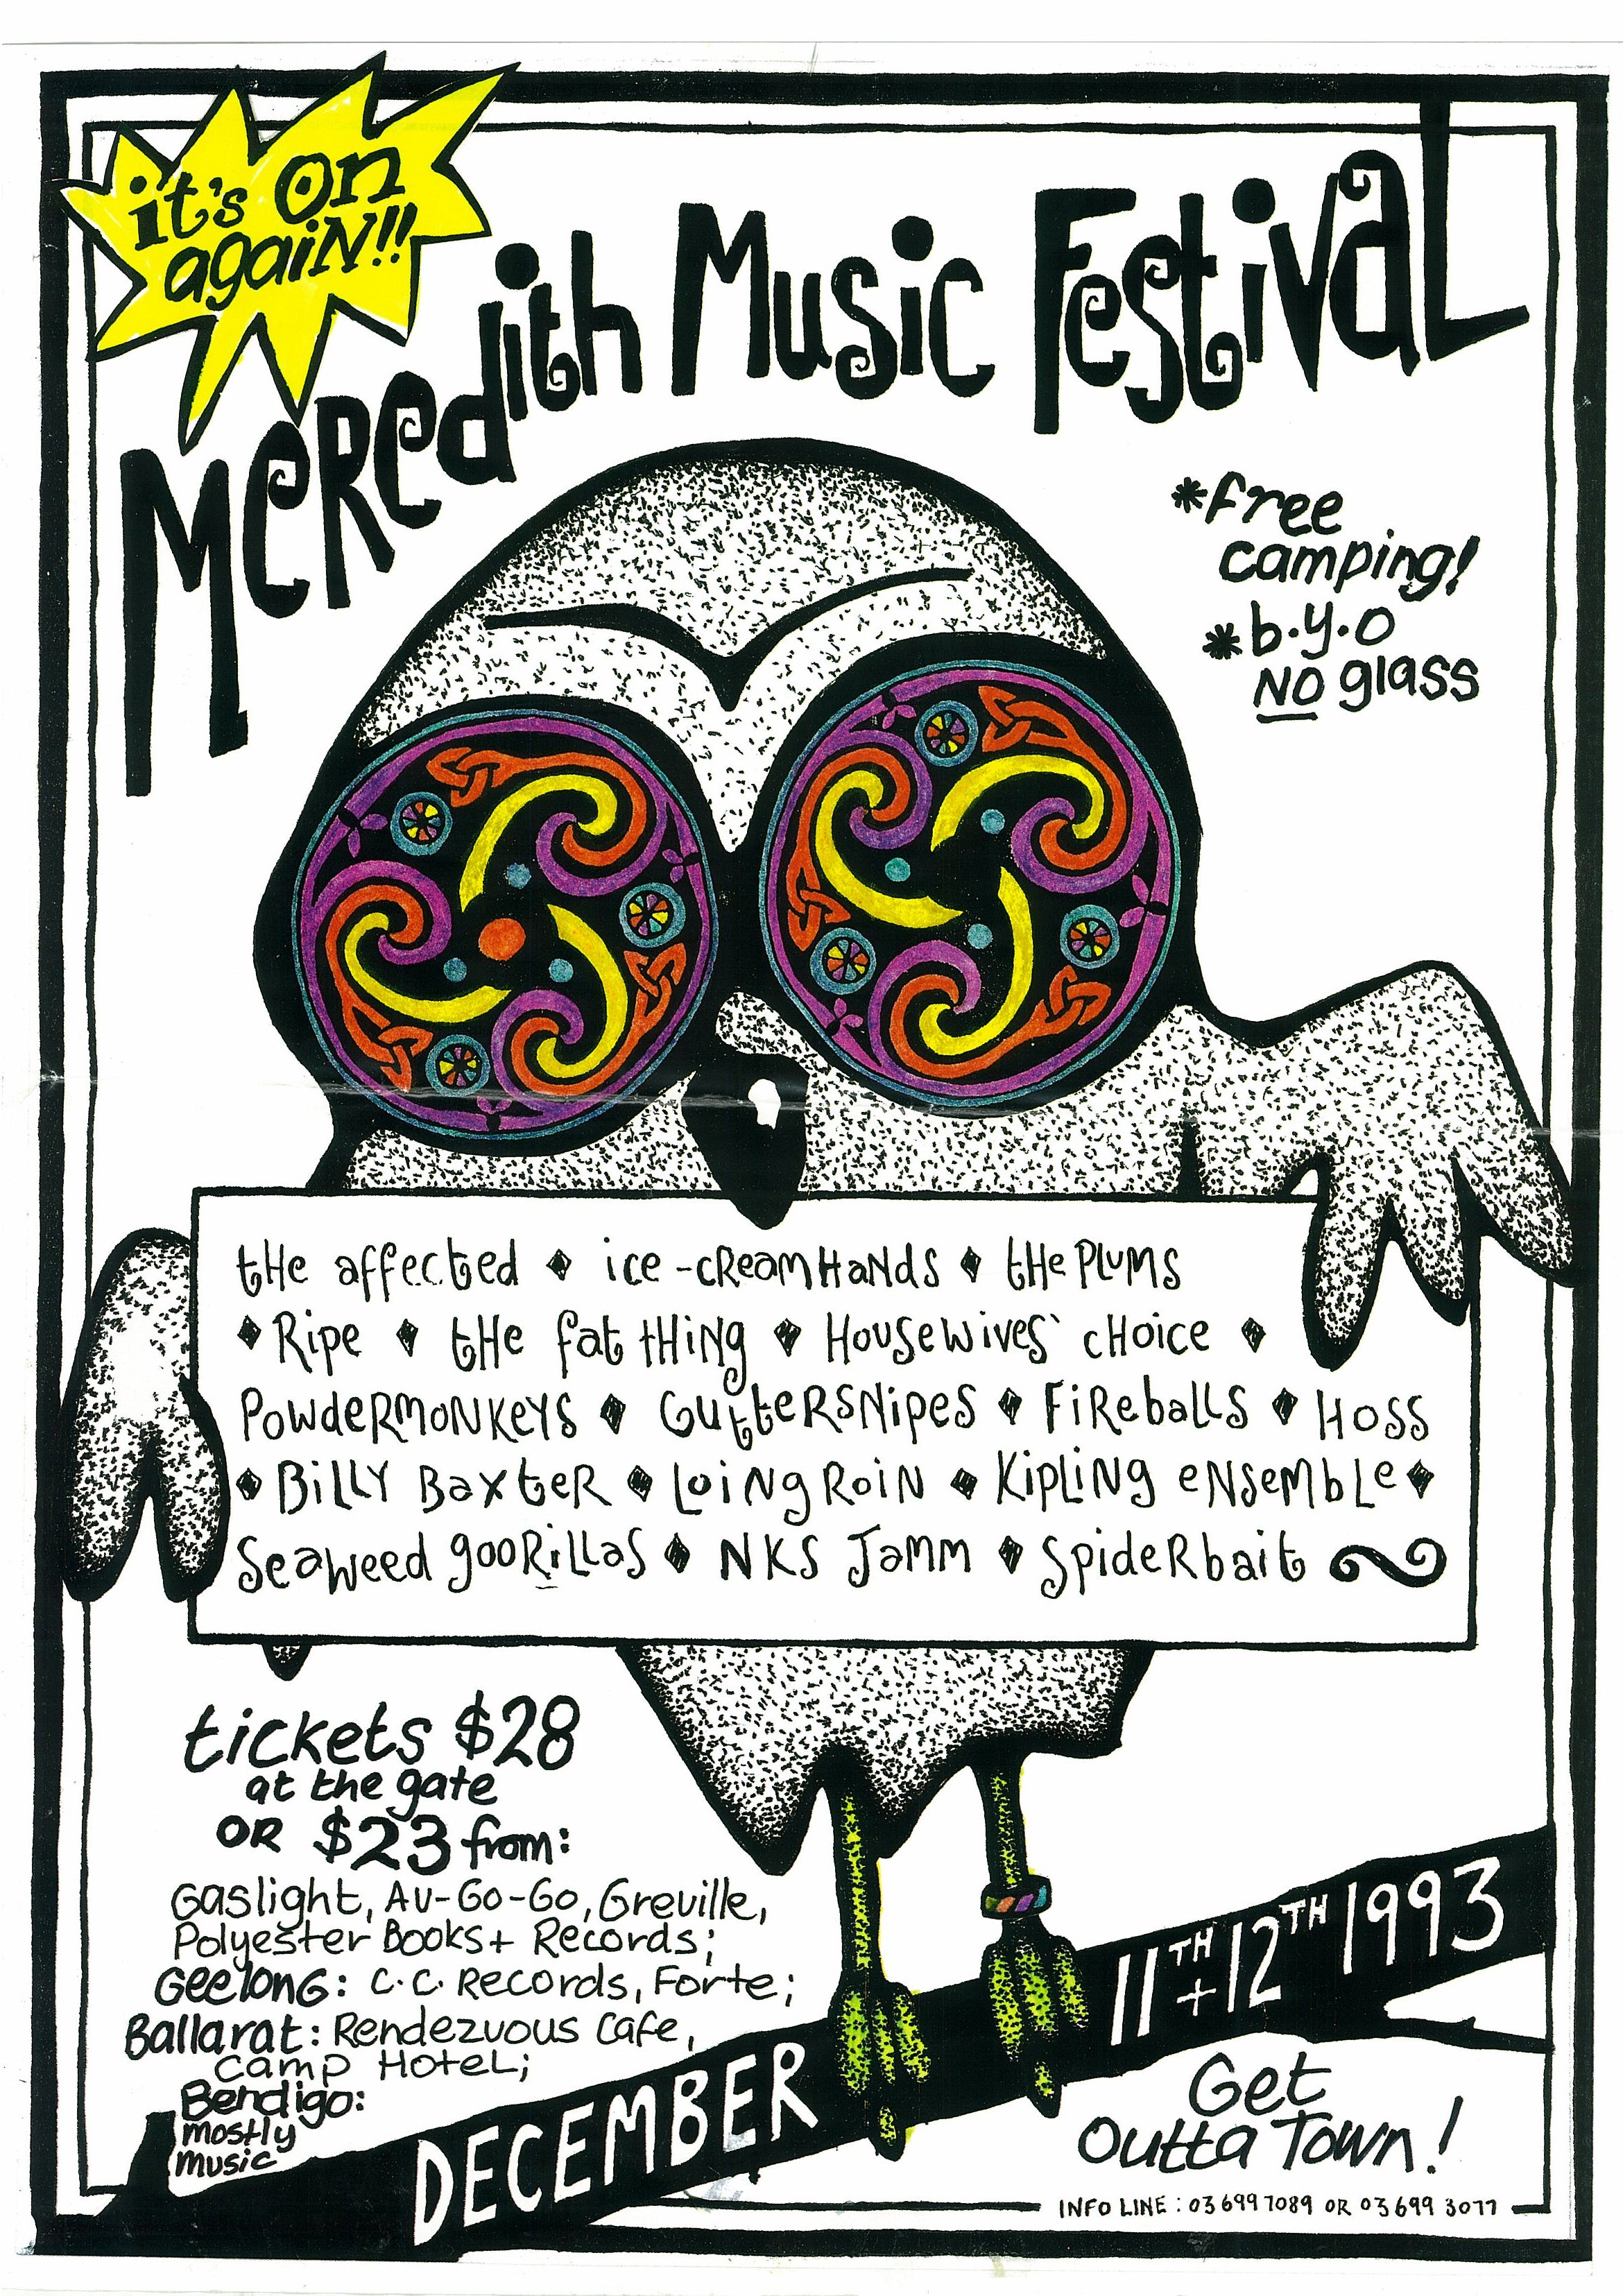 it's on
again!!
Meredith Music Festival
*free
camping!
*b.y.o
NO glass
the affected ♦ ice-creamHands ♦ the Plums
♦ Ripe ♦ the fat tHing ♦ Housewives' cHoice ♦
PowderMonkeys ♦ Guttersnipes ♦ Fireballs ♦ Hoss
♦ Billy Baxter ♦ Loin Groin ♦ Kipling ensemble ♦
Seaweed goorillas ♦ NKS Jamm ♦ Spiderbait
tickets $28
at the gate
OR $23 from:
Gaslight, Au-Go-Go, Greville,
Polyester Books + Records;
Geelong: C.C. Records, Forte;
Ballarat: Rendezvous Cafe,
Camp Hotel;
Bendigo:
mostly
music
DECEMBER 11TH + 12TH 1993
Get
Outta Town!
INFO LINE: 03 699 7089 OR 03 699 3077